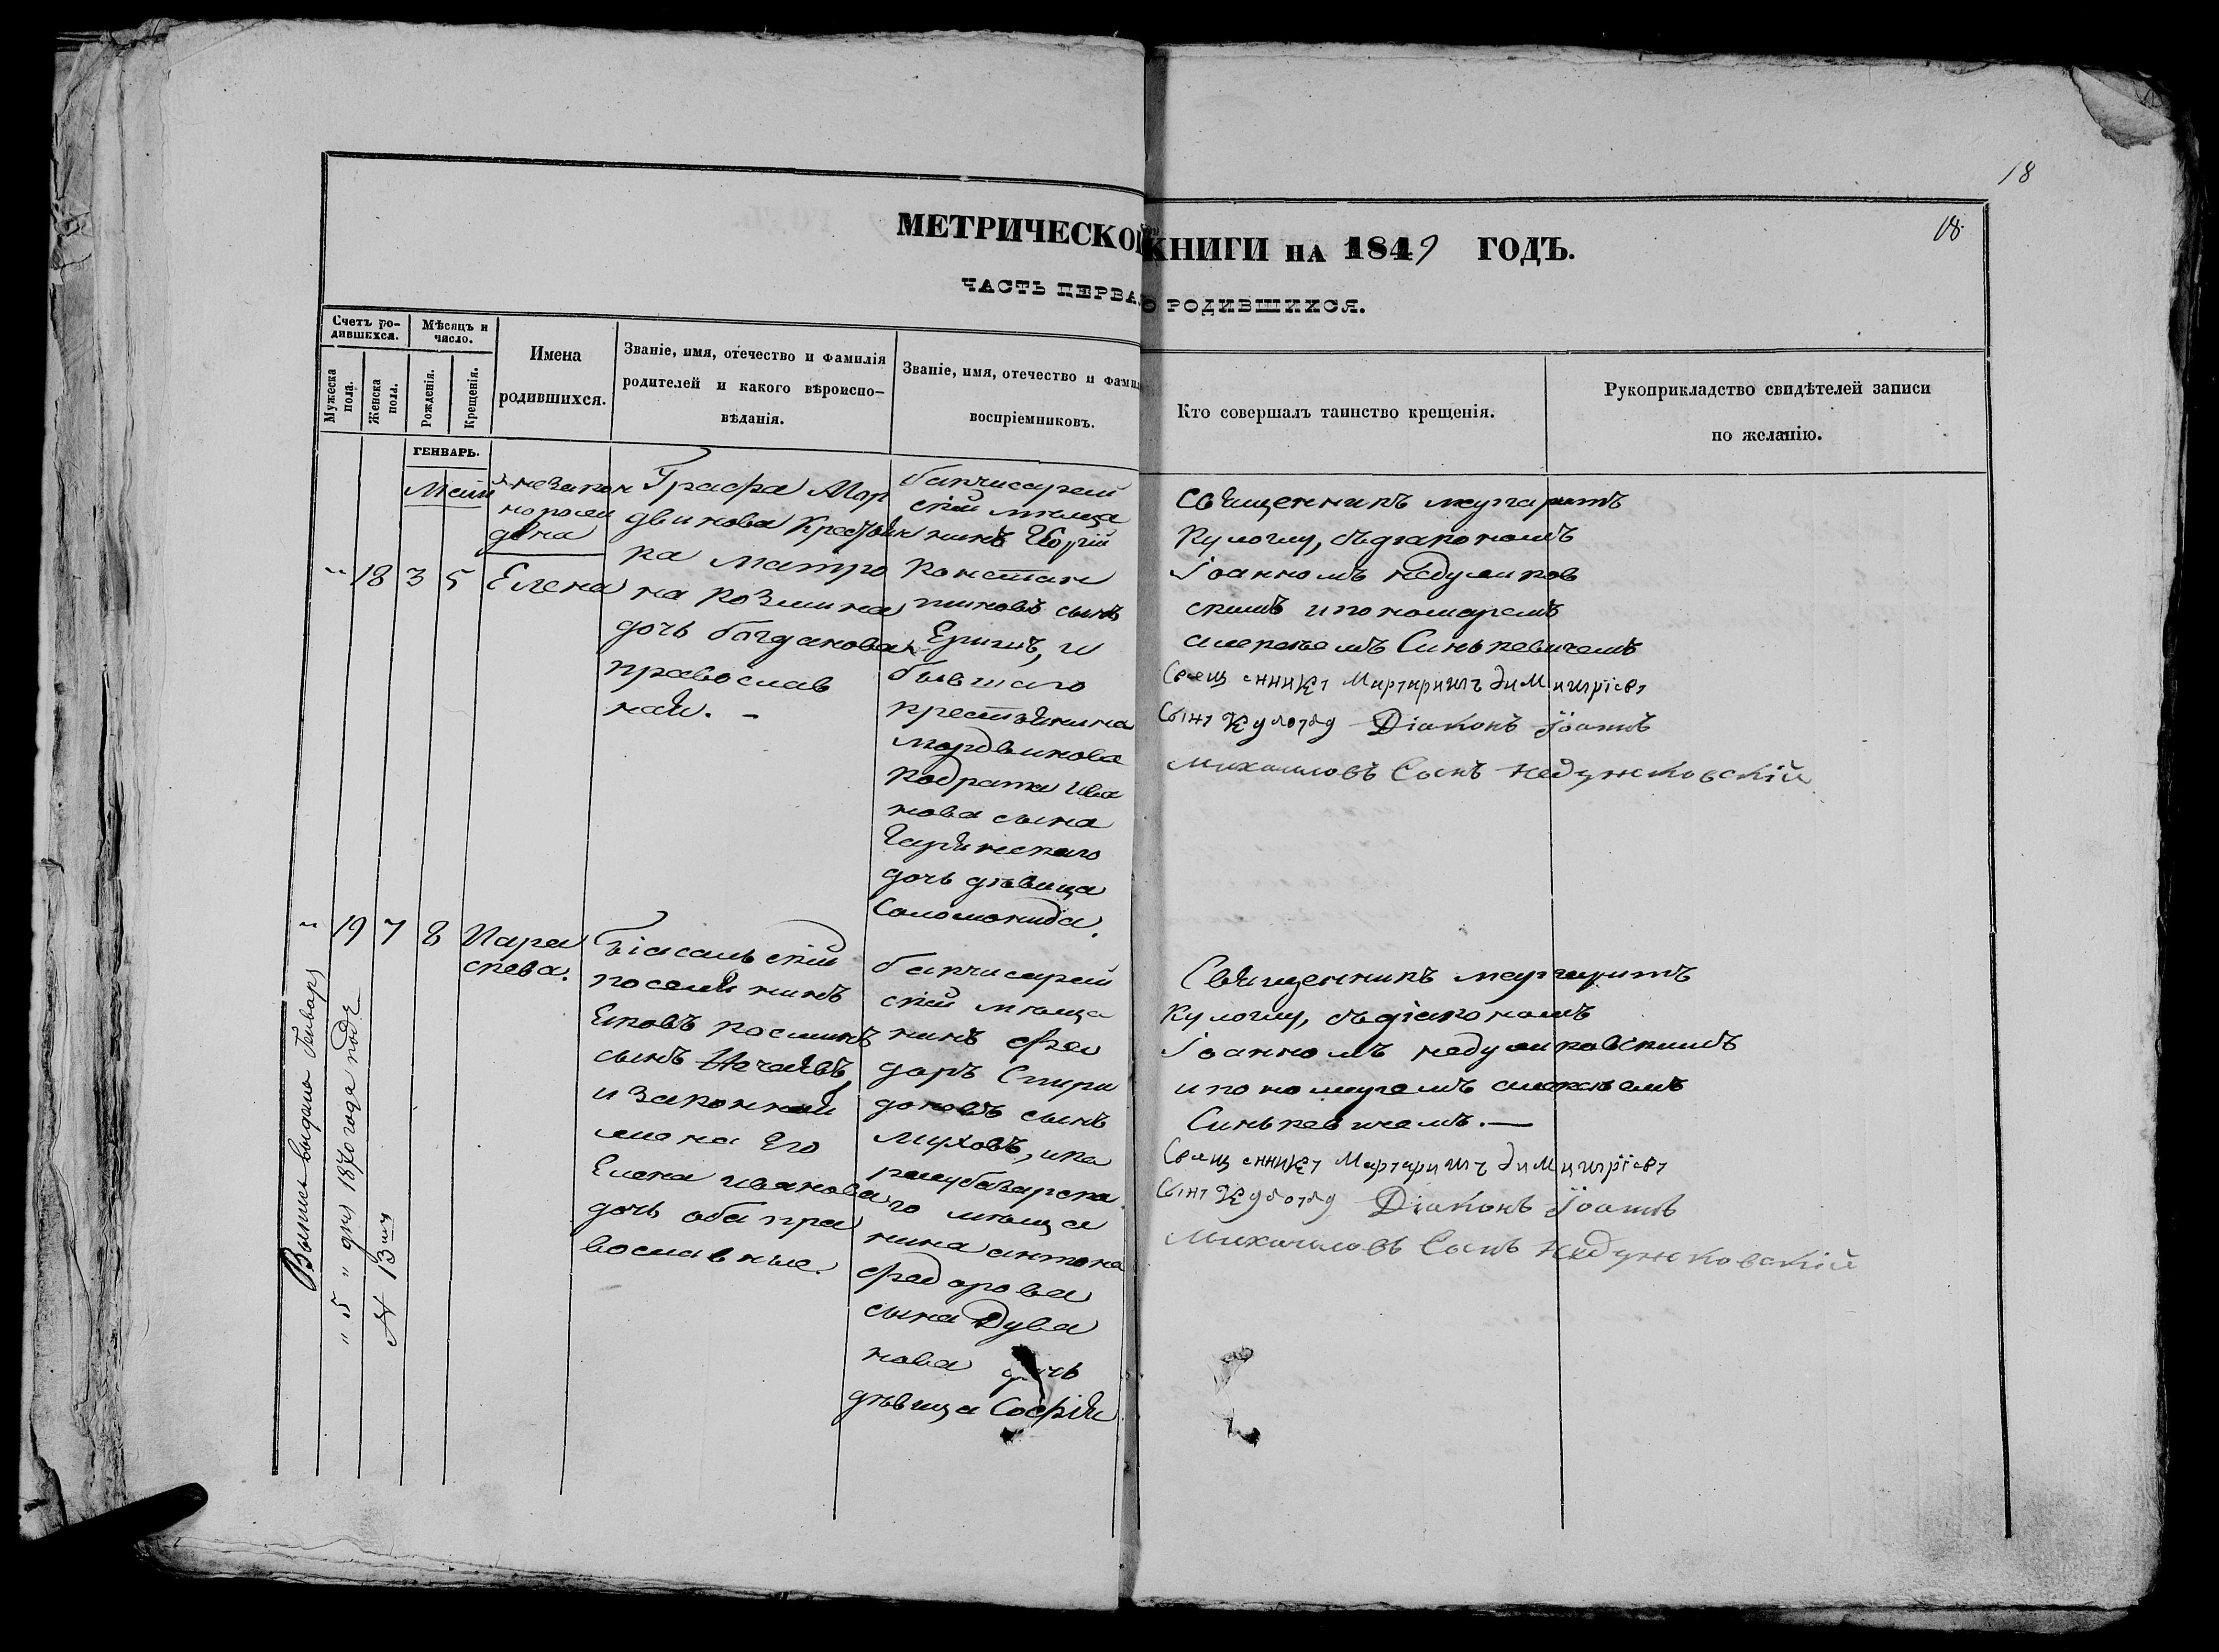 18
18
МЕТРИЧЕСКОЙ КНИГИ НА 1849 ГОДЪ.
ЧАСТЬ ПЕРВА О РОДИВШИХСЯ.
Счетъ ро-
дившихся.
Мужеска
пола.
Женска
пола.
Мѣсяцъ и
число.
Рожденія.
Крещенія.
Имена
родившихся.
Званіе, имя, отечество и фамилія
родителей и какого вѣроиспо-
вѣданія.
Званіе, имя, отечество и фамил
воспріемниковъ.
Кто совершалъ таинство крещенія.
Рукоприкладство свидѣтелей записи
по желанію.
ГЕНВАРЬ.
Маій
незакон
но рож
дена
18 3 5 Елена
Графа Мор
двинова крестьян
ка Матро
на Козмина
дочь Богданова
православ
ная. -
бахчисарай
скій мѣща
нинъ Георгій
Констан
тиновъ сынъ
и
бывшаго
крестьянина
мордвинова
Кодрата Ива
нова сына
дочь дѣвица
Соломонида.
Священникъ маргаритъ
Кулоглу, съ діакономъ
Іоанномъ Недужков
скимъ и пономаремъ
алексѣемъ Синькевичемъ
Священникъ Маргаритъ Димитріевъ
Сынъ Кулоглу Діаконъ Іоаннъ
Михаиловъ Сынъ Недужковскій
19 7 8 Пара
скева.
Біасальскій
поселянинъ
Яковъ Косминъ
сынъ Нечаевъ
и законная
жена Его
Елена иванова
дочь оба пра
вославные.
бахчисарай
скій мѣща
нинъ Фео
доръ Спири
доновъ сынъ
Муховъ, и ка
расубазарска
го мѣща
нина антона
Федорова
сына Дува
нова дочь
дѣвица Софія
Священникъ маргаритъ
Кулоглу, съ діакономъ
Іоанномъ недужковскимъ
и пономаремъ алексѣемъ
Синькевичемъ. —
Священникъ Маргаритъ Димитріевъ
Сынъ Кулоглу Діаконъ Іоаннъ
Михаиловъ Сынъ Недужковскій
Выпись выдана Генвар
" 5 " дня 1870 года подъ
№ 13мъ